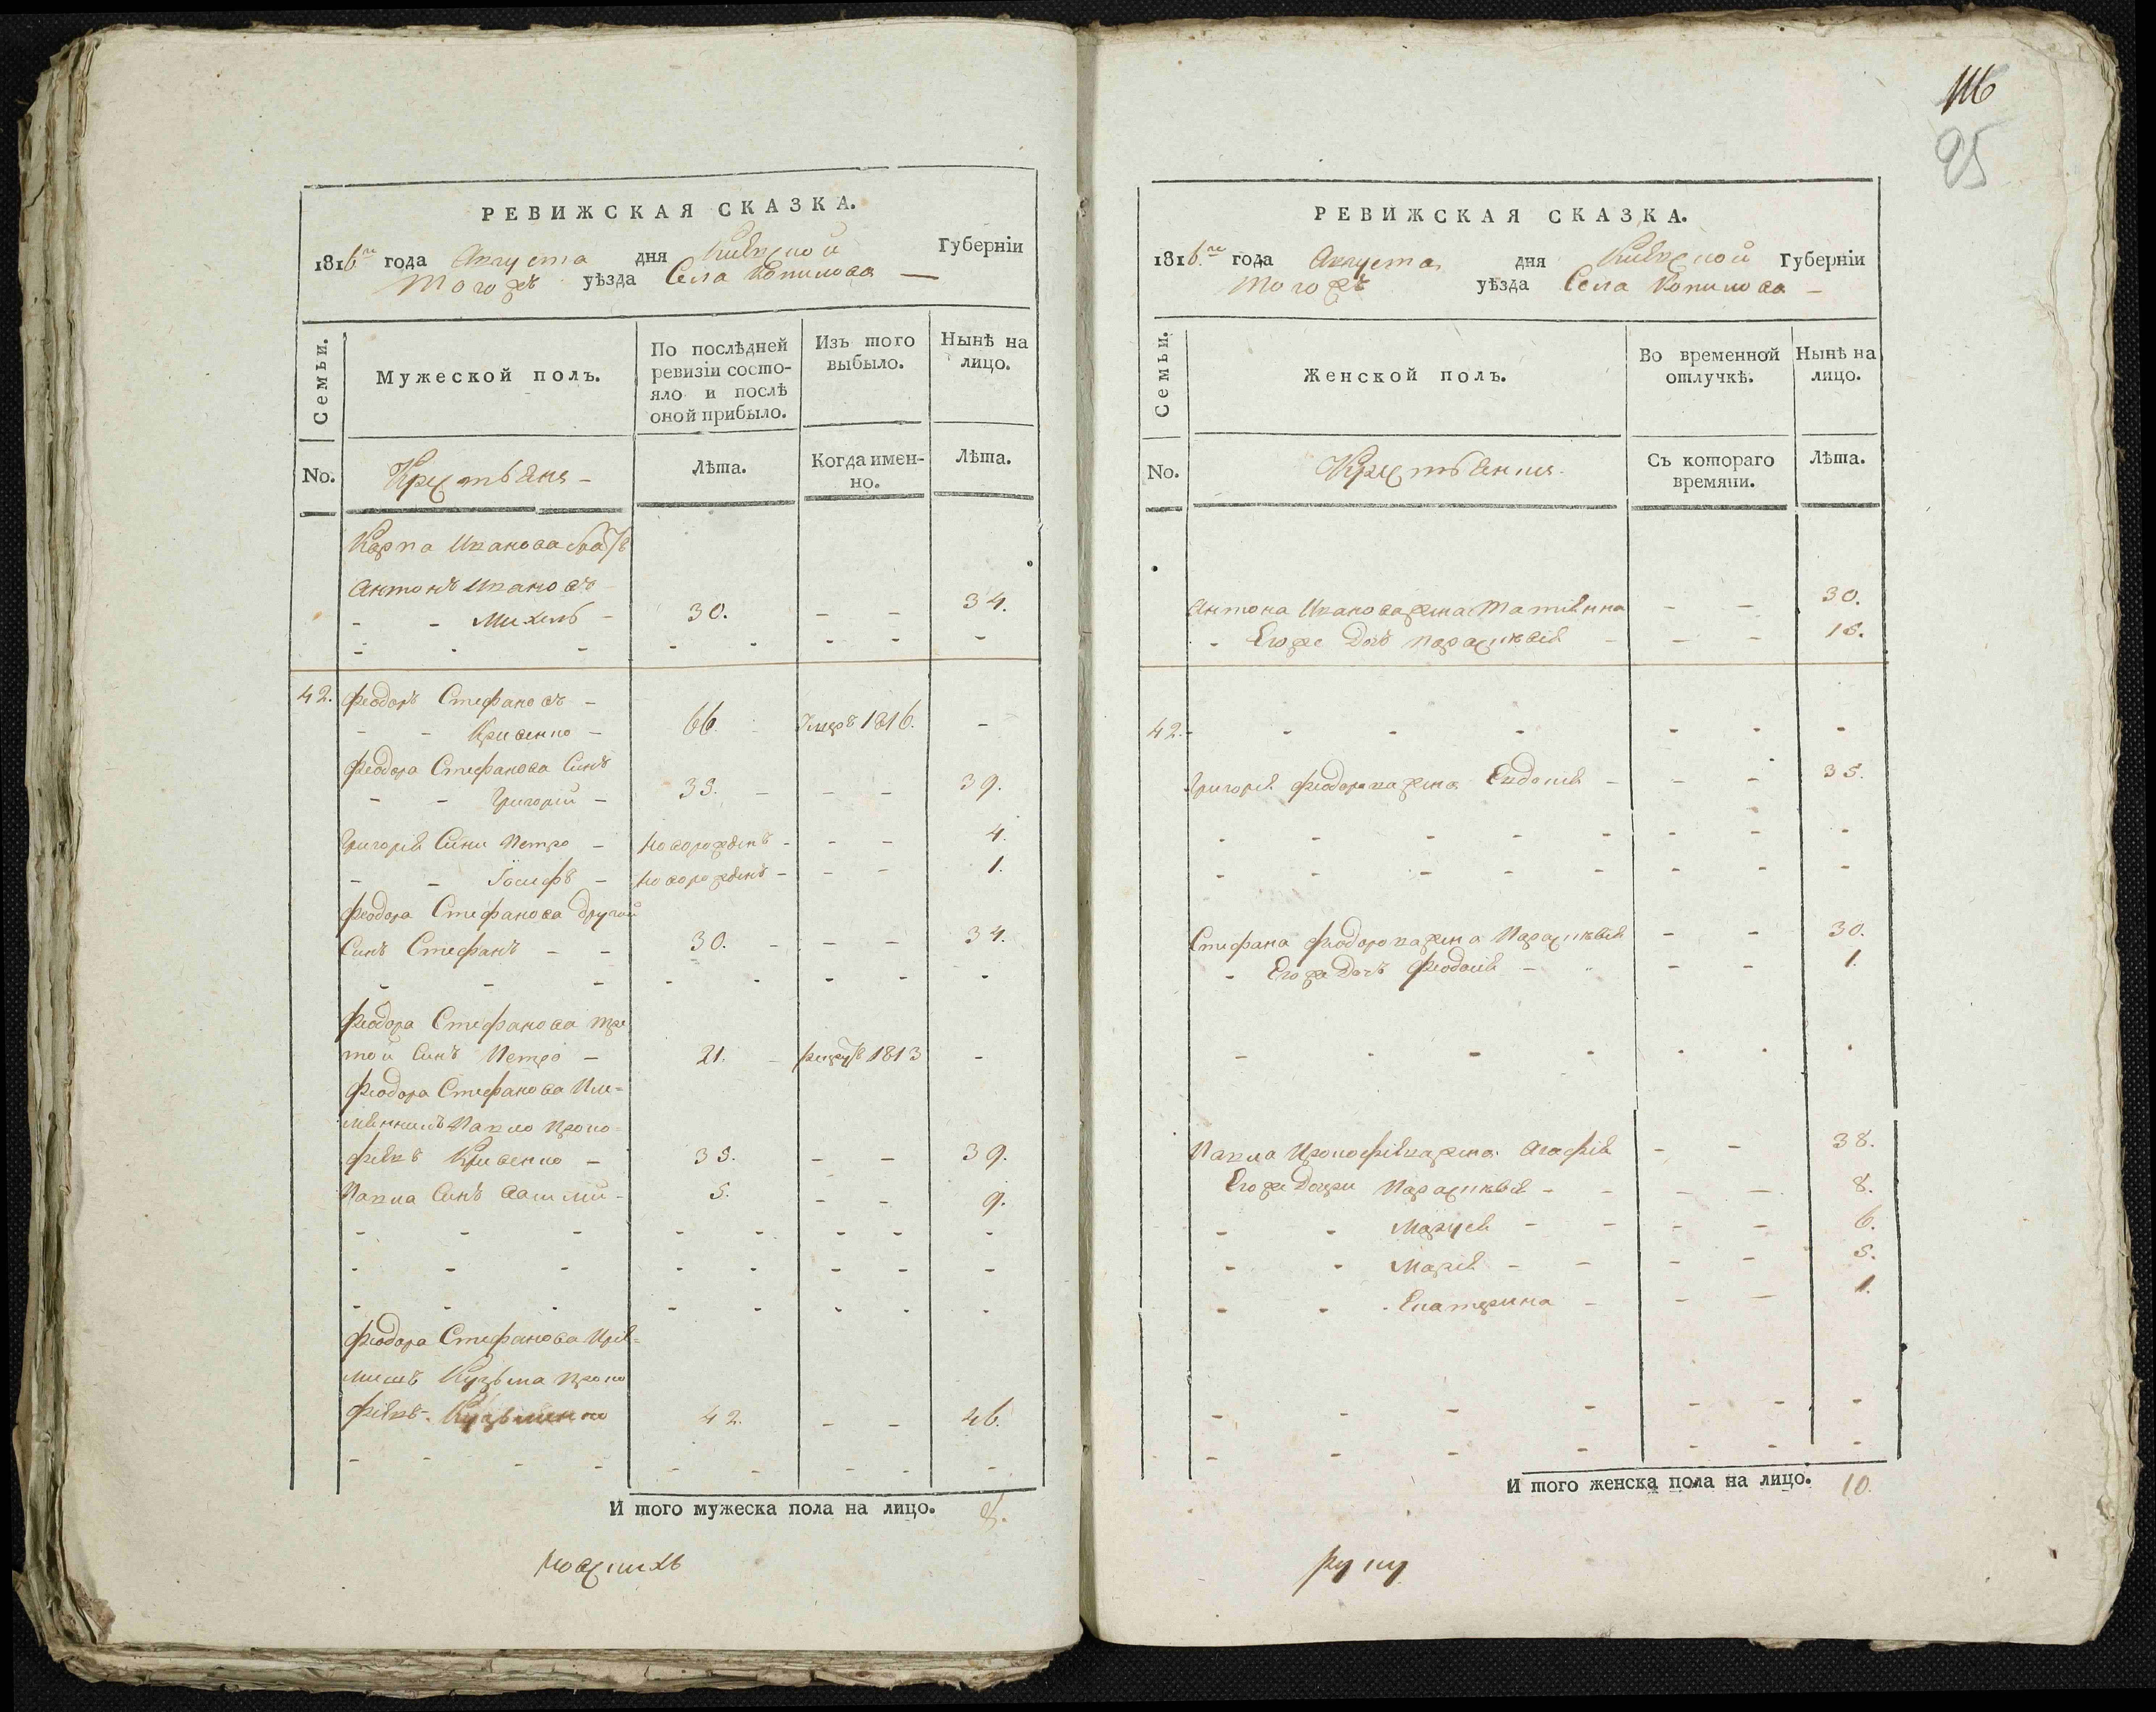 РЕВИЖСКАЯ СКАЗКА.
1816го года Августа дня Киевской Губерніи
Тогожъ уѣзда Села Копилова —
Семьи.
Мужеской полъ.
По послѣдней ревизіи состо-
яло и послѣ оной прибыло.
Изъ того выбыло.
Нынѣ на лицо.
No.
Крестьяне -
Лѣта.
Когда имен-
но.
Лѣта.
Карпа Иванова братъ
Антонъ Ивановъ
- - Михель - 30. - - 34.
42. Феодоръ Стефановъ -
- - Кривенко - 66. Умеръ 1816. -
Феодора Стефанова Синъ
- - Григорій - 35. - - - 39.
Григорія Сини Петро - новорожденъ - - - 4.
- - Іосифъ - новорожденъ - - - 1.
Феодора Стефанова другой
Синъ Стефанъ - - 30. - - - 34.
Феодора Стефанова тре
той Синъ Петро - 21. - рекрутъ 1813 -
Феодора Стефанова Пле=
мянникъ Павло Проко=
фіевъ Кривенко - 35. - - 39.
Павла Синъ Василій - 5. - - 9.
Феодора Стефанова Прі=
мишъ Кузьма Проко
фіевъ - 42. - - 46.
И того мужеска пола на лицо. 8.
116
95
РЕВИЖСКАЯ СКАЗКА.
1816го года Августа дня Киевской Губерніи
Тогожъ уѣзда Села Копилова —
Семьи.
Женской полъ.
Во временной отлучкѣ.
Нынѣ на лицо.
No.
Съ котораго времяни.
Лѣта.
Антона Иванова жена Татіянна - - 30.
- Егоже Дочь Параскевія - - - 15.
42. - - - - - - -
Григорія Феодорова жена Евдокія - - - 35.
Стефана Феодорова жена Параскевія - - 30.
- Егоже Дочь Феодосія - - - 1.
Павла Прокофіева жена Агафія - - 38.
Егоже Дочери Параскевія - - - - 8.
- - - - - 6.
- - Марія - - - - 5.
- - Екатерина - - - 1.
И того женска пола на лицо. 10.
руку